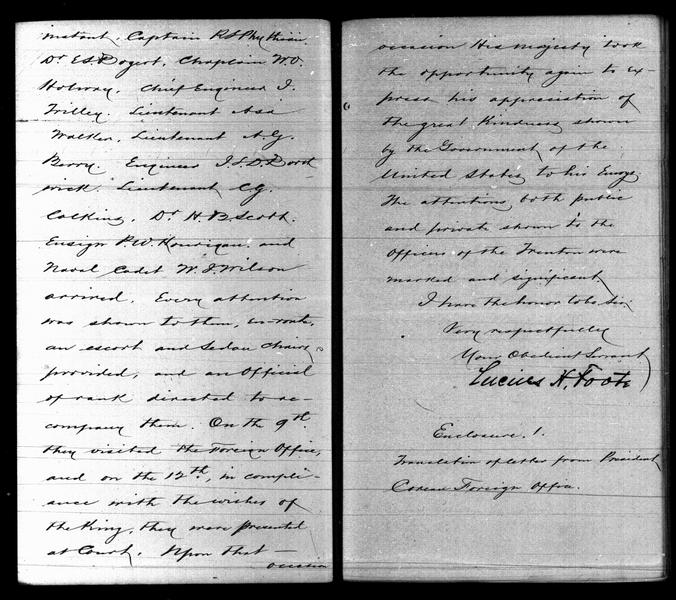 instant, Captain R. L. Phythian,
Dr E S Bogert, Chaplain W. O.
Holway, Chief Engineer J.
Trilley, Lieutenant Asa
Walker, Lieutenant A. G.
Berry, Engineer J. L. D. Borth-
wick, Lieutenant C. G.
Calkins, Dr H. B. Scott,
Ensign P. W. Hourigan, and
Naval Cadet W. J. Wilson
arrived. Every attention
was shown to them, en-route,
an escort and Sedan Chairs
provided, and an Official
of rank directed to ac-
company them. On the 9th.
they visited the Foreign Office,
and on the 12th, in compli-
ance with the wishes of
the King, they were presented
at Court. Upon that —
occasion
occasion His Majesty took
the opportunity again to ex-
press his appreciation of
the great kindness shown
by the Government of the
United States to his Envoys.
The attentions both public
and private shown to the
Officers of the Trenton were
marked and significant.
I have the honor to be Sir:
Very respectfully
Your Obedient Servant
Lucius H. Foote
Enclosure. 1.
Translation of letter from President
Corean Foreign Office.